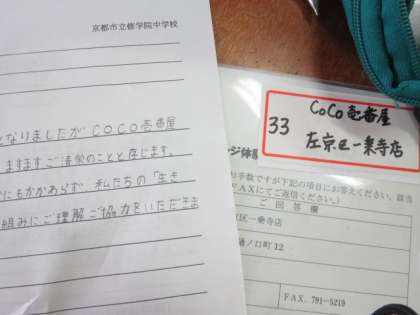 京都市立修学院中学校
となりましたがCOCO壱番屋
ますますご清栄のことと存じます。
にもかかわらず、私たちの「生き
組みにご理解ご協力をいただきま
33
CoCo壱番屋
左京区一乗寺店
ンジ体験
お手数ですが下記の項目にお答えください。
FAXにてご返信ください。)
ご回答欄
区一乗寺店
ノ口町12
FAX. 791-5219